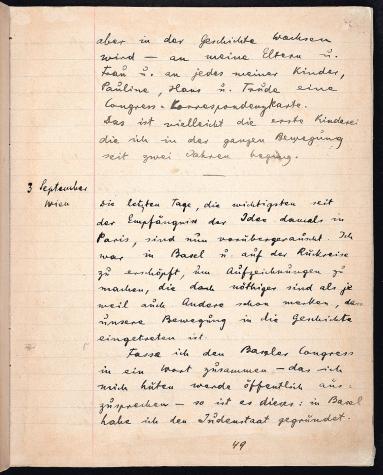 aber in der Geschichte wachsen
wird — an meine Eltern u.
Frau u. an jedes meiner Kinder,
Pauline, Hans u. Trude eine
Congress-Korrespondenzkarte.
Das ist vielleicht die erste Kinderei
die ich in der ganzen Bewegung
seit zwei Jahren beging.
3 September
Wien
Die letzten Tage, die wichtigsten seit
der Empfängnis der Idee damals in
Paris, sind nun vorübergerauscht. Ich
war in Basel u. auf der Rückreise
zu erschöpft, um Aufzeichnungen zu
machen, die doch nöthiger sind als je
weil auch Andere schon merken, dass
unsere Bewegung in die Geschichte
eingetreten ist.
Fasse ich den Baseler Congress
in ein Wort zusammen — das ich
mich hüten werde öffentlich aus-
zusprechen — so ist es dieses: in Basel
habe ich den Judenstaat gegründet.
49